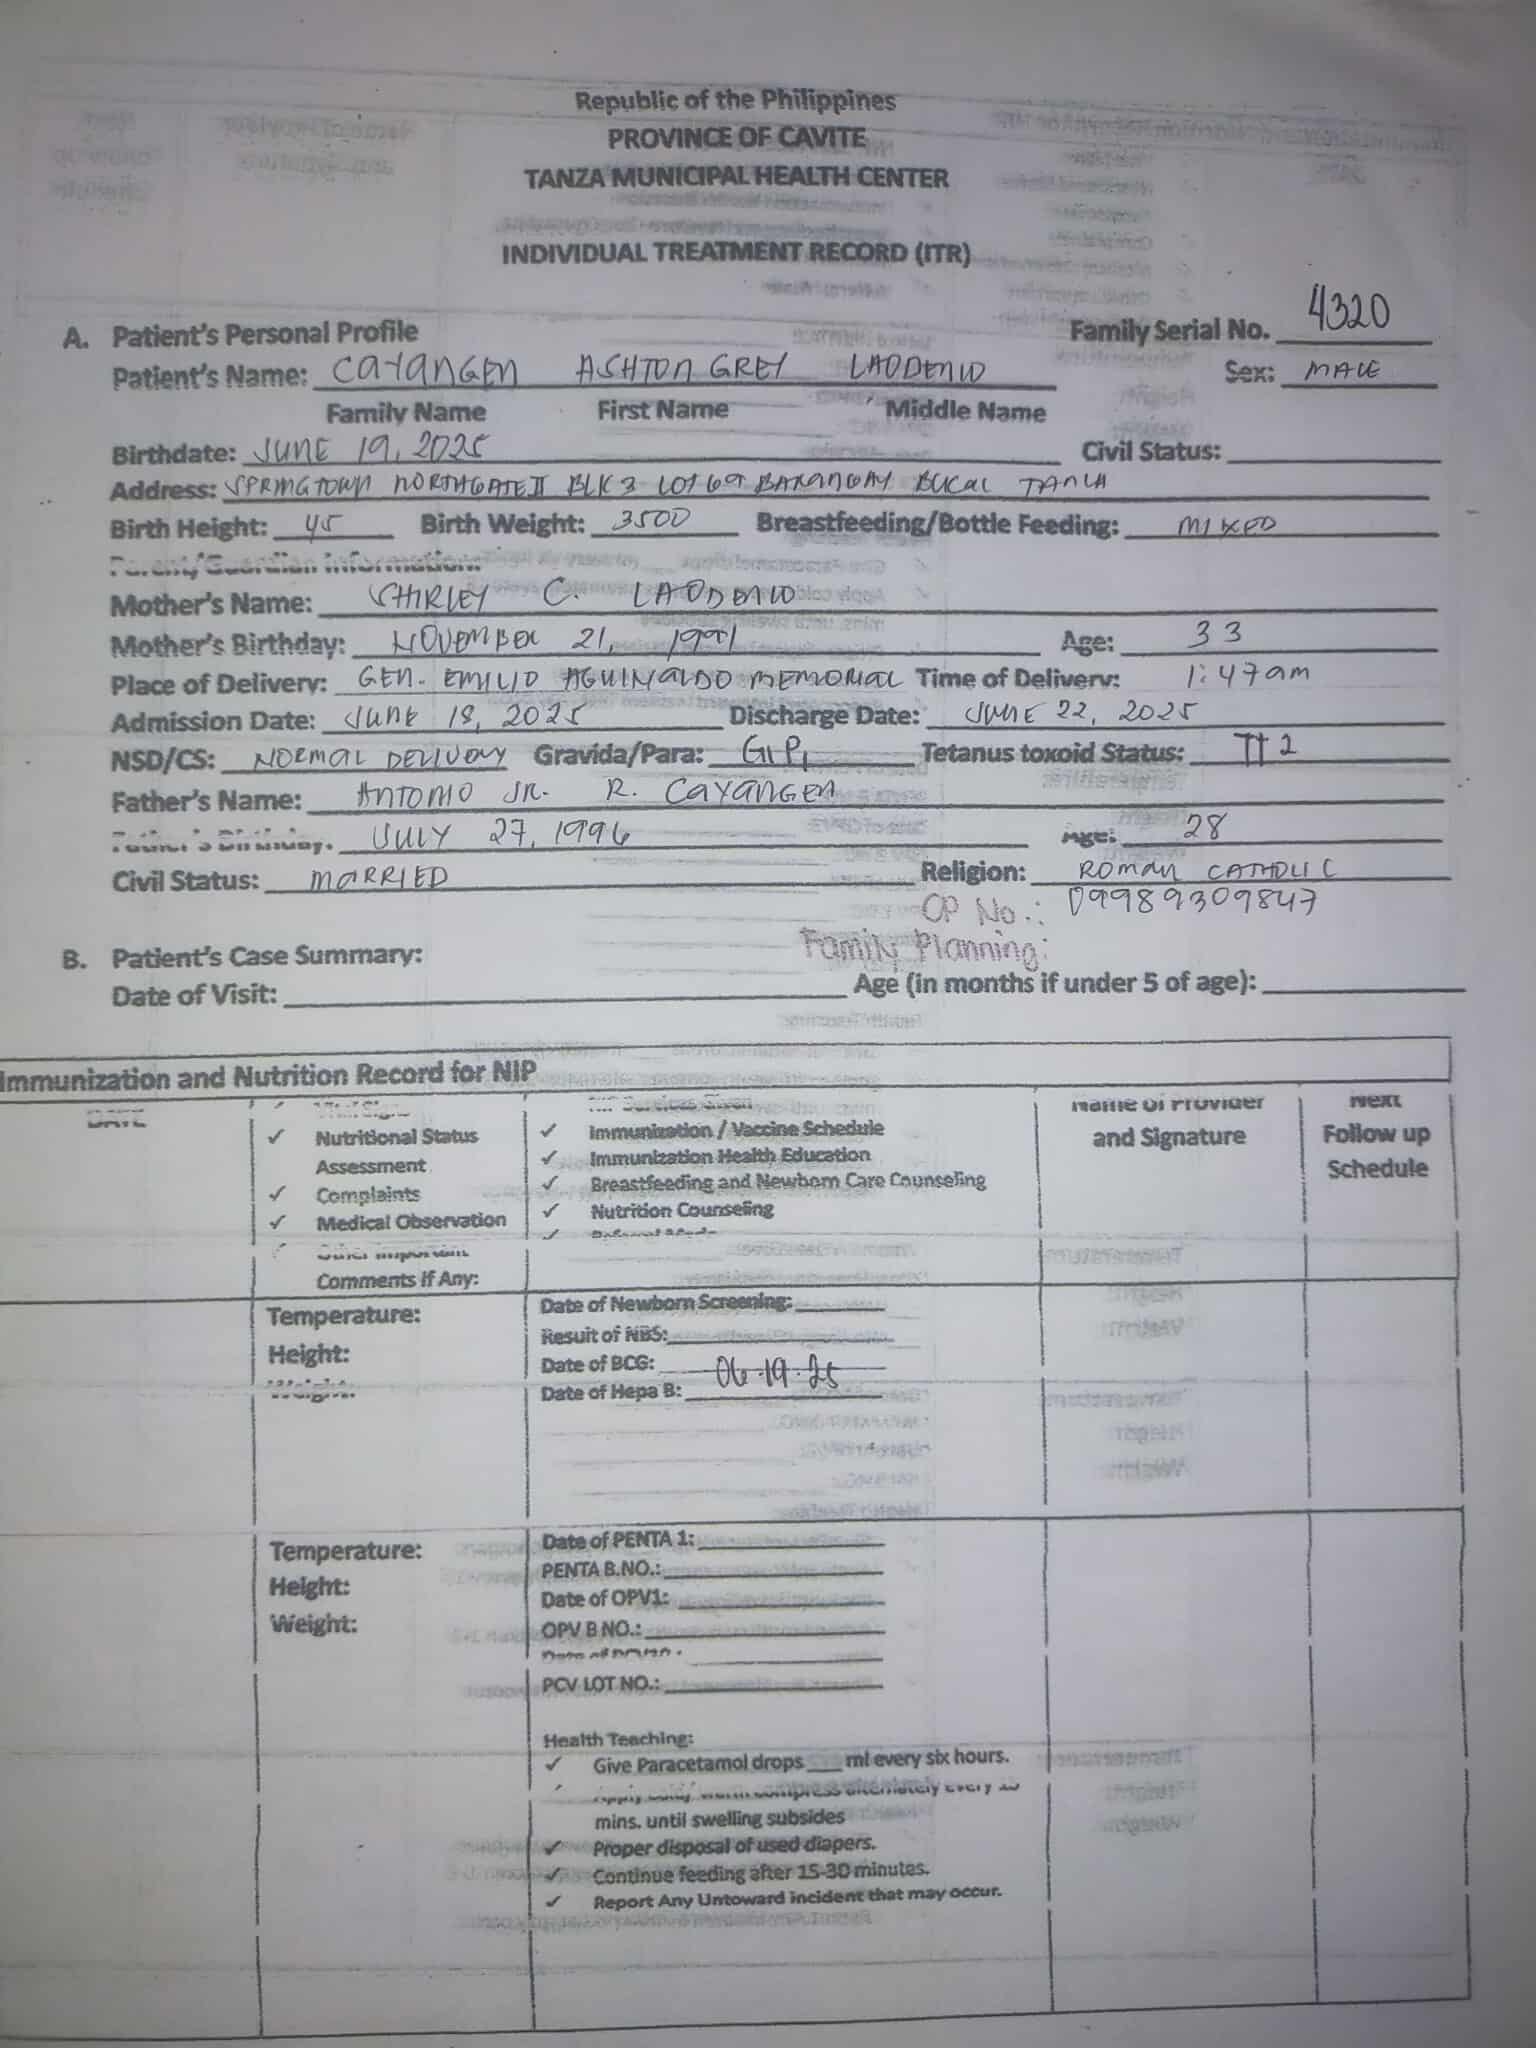 Republic of the Philippines
PROVINCE OF CAVITE
TANZA MUNICIPAL HEALTH CENTER
INDIVIDUAL TREATMENT RECORD (ITR)
A. Patient's Personal Profile Family Serial No. 4320
Patient's Name: CAYANGEN ASHTON GREY LAODENIO Sex: MALE
Family Name First Name Middle Name
Birthdate: JUNE 19, 2025 Civil Status:
Address: SPRINGTOWN NORTHGATE II BLK 3 LOT 69 BARANGAY BUCAL TANZA
Birth Height: 45 Birth Weight: 3500 Breastfeeding/Bottle Feeding: MIXED
Parent/Guardian Information:
Mother's Name: SHIRLEY C. LAODENIO
Mother's Birthday: NOVEMBER 21, 1991 Age: 33
Place of Delivery: GEN. EMILIO AGUINALDO MEMORIAL Time of Delivery: 1:47am
Admission Date: JUNE 18, 2025 Discharge Date: JUNE 22, 2025
NSD/CS: NORMAL DELIVERY Gravida/Para: G1P1 Tetanus toxoid Status: TT2
Father's Name: ANTONIO JR. R. CAYANGEN
Father's Birthday: JULY 27, 1996 Age: 28
Civil Status: MARRIED Religion: ROMAN CATHOLIC
CP No.: 09989309847
Family Planning:
B. Patient's Case Summary:
Date of Visit: Age (in months if under 5 of age):
Immunization and Nutrition Record for NIP
DATE
✓ Vital Signs
✓ Nutritional Status
Assessment
✓ Complaints
✓ Medical Observation
✓ Other Important
Comments if Any:
NIP Services Given
✓ Immunization / Vaccine Schedule
✓ Immunization Health Education
✓ Breastfeeding and Newborn Care Counseling
✓ Nutrition Counseling
✓ Referral Made
Name of Provider
and Signature
Next
Follow up
Schedule
Temperature:
Height:
Weight:
Date of Newborn Screening:
Result of NBS:
Date of BCG: 06-19-25
Date of Hepa B:
Temperature:
Height:
Weight:
Date of PENTA 1:
PENTA B.NO.:
Date of OPV1:
OPV B NO.:
Date of
PCV LOT NO.:
Health Teaching:
✓ Give Paracetamol drops ___ ml every six hours.
✓ Apply cold/ warm compress alternately every 15
mins. until swelling subsides
✓ Proper disposal of used diapers.
✓ Continue feeding after 15-30 minutes.
✓ Report Any Untoward incident that may occur.